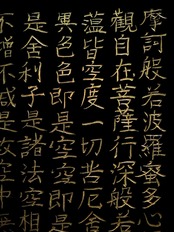 摩訶般若波羅蜜多心
觀自在菩薩行深般若
薀皆空度一切苦厄舍
異色色即是空空即是
是舍利子是諸法空相
不增不減是故空中無